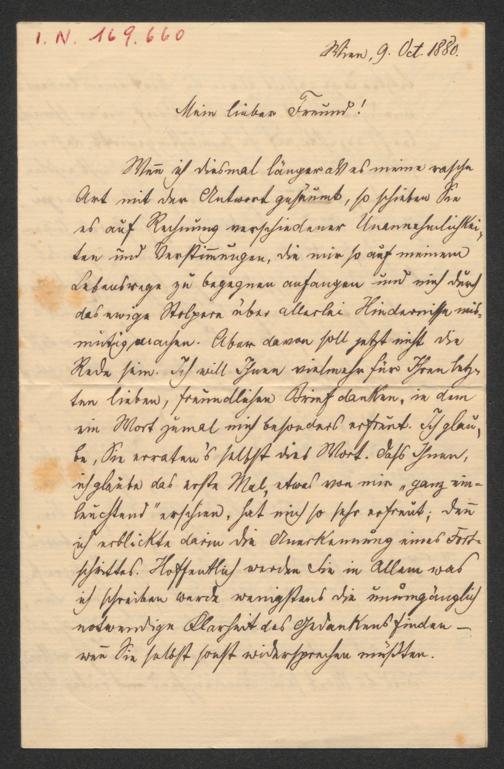 I. N. 169.660
Wien, 9. Oct. 1880.
Mein lieber Freund!
Wenn ich diesmal länger als es meine rasche
Art mit der Antwort gesäumt, so schieben Sie
es auf Rechnung verschiedener Unannehmlichkei-
ten und Verstimmungen, die mir so auf meinem
Lebenswege zu begegnen anfangen und mich durch
das ewige Stolpern über allerlei Hindernisse mis-
mutig machen. Aber davon soll jetzt nicht die
Rede sein. Ich will Ihnen vielmehr für Ihren letz-
ten lieben, freundlichen Brief danken, in dem
ein Wort zumal mich besonders erfreut. Ich glau-
be, Sie erraten's selbst dies Wort. Dass Ihnen,
ich glaube das erste Mal, etwas von mir „ganz ein-
leuchtend" erschien, hat mich so sehr erfreut; denn
ich erblickte darin die Anerkennung eines Fort-
schrittes. Hoffentlich werden Sie in Allem was
ich schreiben werde wenigstens die unumgänglich
notwendige Klarheit des Gedankens finden —
wenn Sie selbst sonst widersprechen müßten.